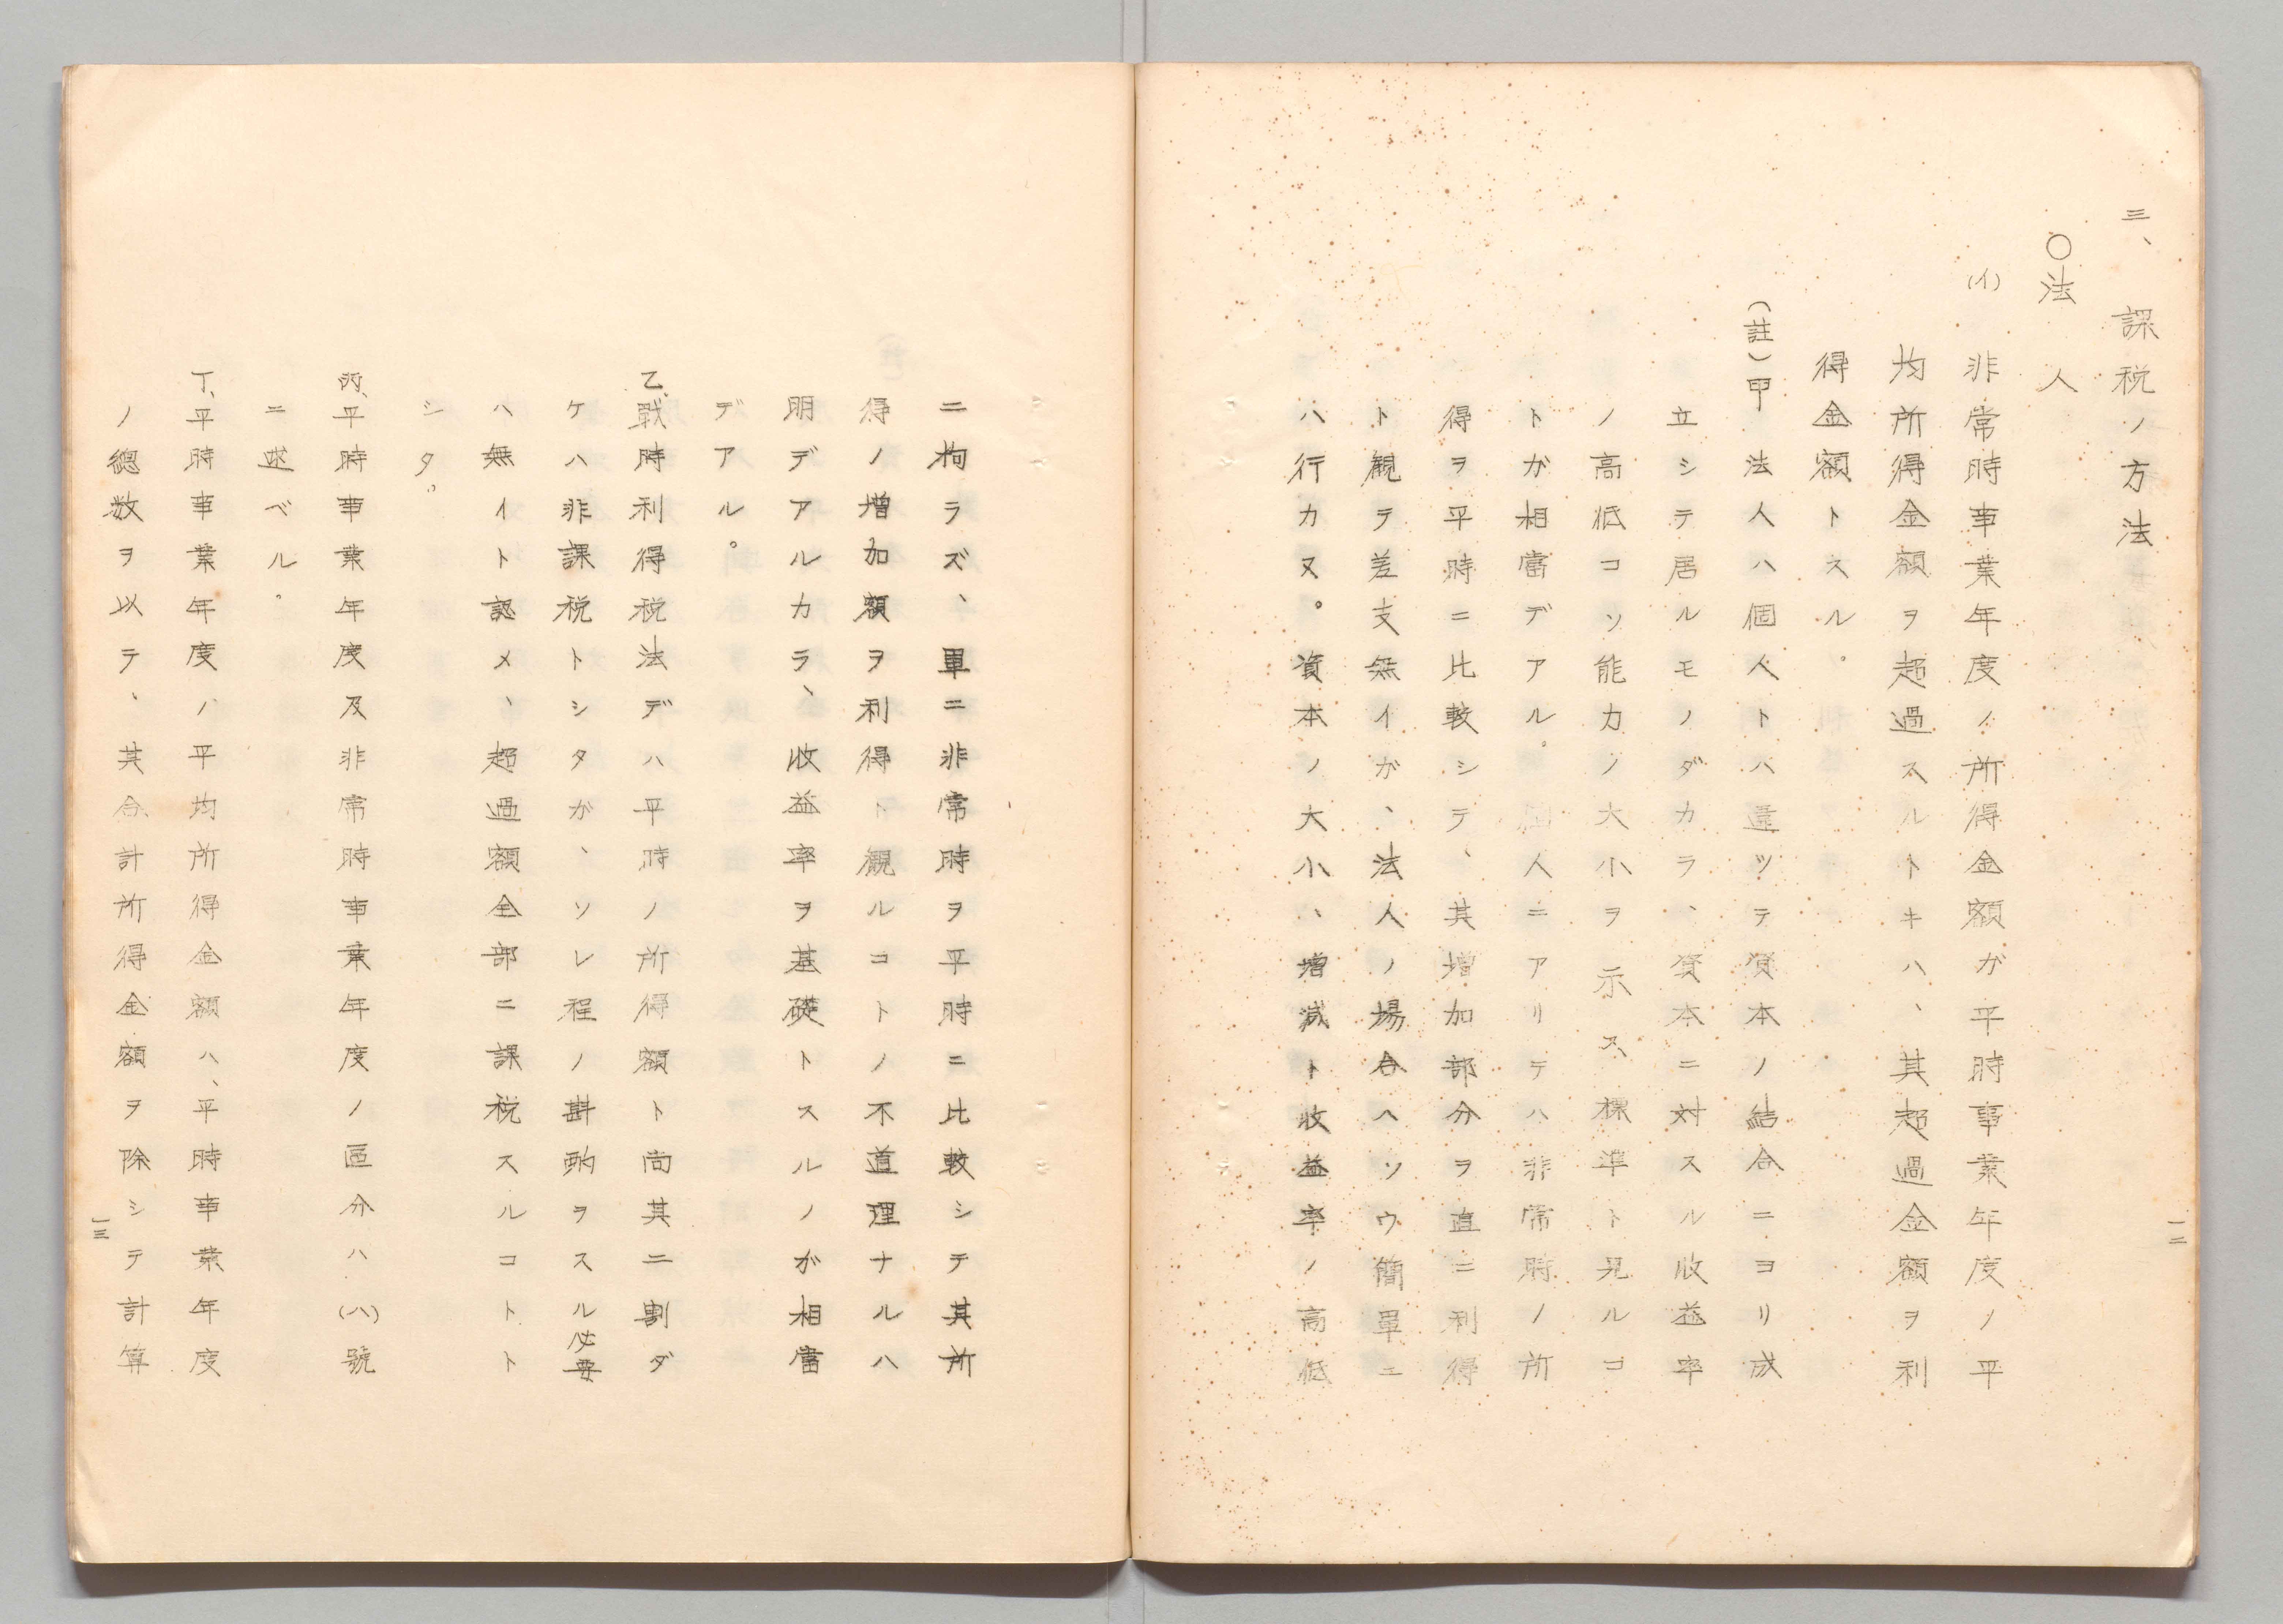 三、課税ノ方法
〇法人
(イ)非常時事業年度ノ所得金額ガ平時事業年度ノ平
均所得金額ヲ超過スルトキハ、其超過金額ヲ利
得金額トスル。
(註)甲 法人ハ個人トハ違ツテ資本ノ結合ニヨリ成
立シテ居ルモノダカラ、資本ニ対スル收益率
ノ高低コソ能力ノ大小ヲ示ス、標準ト見ルコ
トガ相當デアル。個人ニアリテハ非常時ノ所
得ヲ平時ニ比較シテ、其増加部分ヲ直ニ利得
ト観テ差支無イガ、法人ノ場合ハソウ簡單ニ
ハ行カヌ。資本ノ大小、増減ト收益率ノ高低
一二
ニ拘ラズ、單ニ非常時ヲ平時ニ比較シテ其所
得ノ増加額ヲ利得ト観ルコトノ不道理ナルハ
明デアルカラ、收益率ヲ基礎トスルノガ相當
デアル。
乙、戰時利得税法デハ平時ノ所得額ト尚其二割ダ
ケハ非課税トシタガ、ソレ程ノ斟酌ヲスル必要
ハ無イト認メ、超過額全部ニ課税スルコトト
シタ。
丙、平時事業年度及非常時事業年度ノ區分ハ(ハ)號
ニ述ベル。
丁、平時事業年度ノ平均所得金額ハ、平時事業年度
ノ總数ヲ以テ、其合計所得金額ヲ除シテ計算
一三